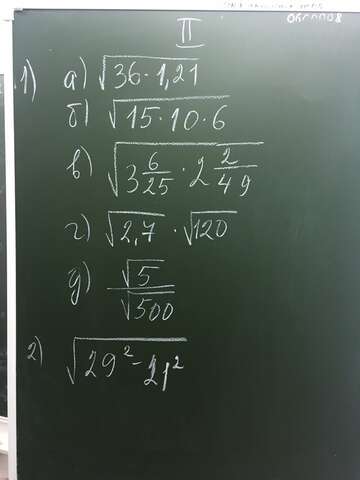 II
1) а) √36·1,21
б) √15·10·6
в) √3 6/25 · 2 2/49
г) √2,7 · √120
д) √5/√500
2) √29²-21²